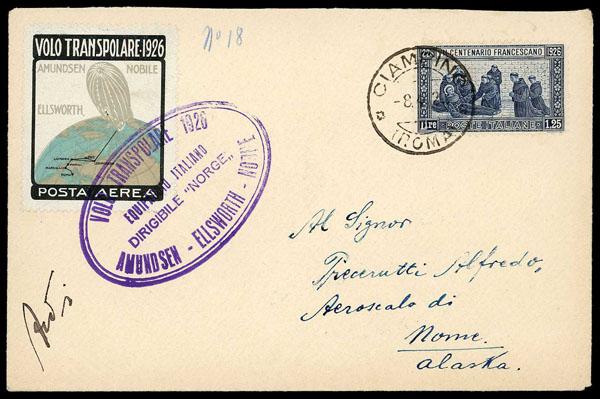 VOLO TRANSPOLARE·1926
AMUNDSEN NOBILE
ELLSWORTH
ROMA
POSTA AEREA
Nº 18
VOLO TRANSPOLARE 1926
EQUIPAGGIO ITALIANO
DIRIGIBILE "NORGE"
AMUNDSEN - ELLSWORTH - NOBILE
CIAMPINO
(ROMA)
CENTENARIO FRANCESCANO 1926
LIRE POSTE ITALIANE 1.25
Al Signor
Precerutti Alfredo,
Aeroscalo di
Nome.
Alaska.